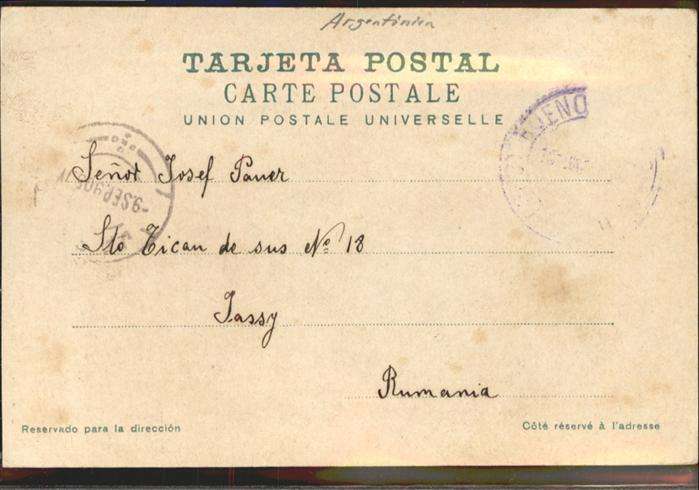 Argentinien
TARJETA POSTAL
CARTE POSTALE
UNION POSTALE UNIVERSELLE
BUENO
-9 SEP. 905
Señor Josef Pauer
Sto Tican de sus No 18
Jassy
Rumania
Reservado para la dirección
Côté réservé à l'adresse